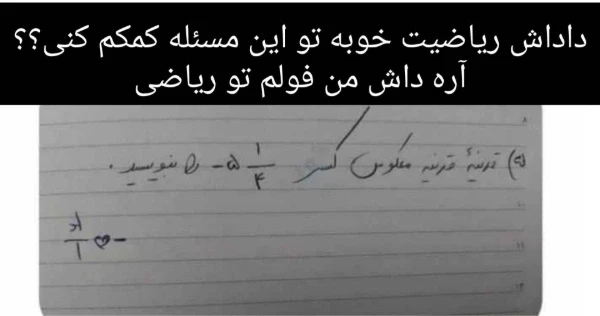 داداش ریاضیت خوبه تو این مسئله کمکم کنی؟؟
آره داش من فولم تو ریاضی
قرینهٔ قرینه معکوس کسر ۵ ۱/۴- را بنویسید.
-۵ ۴/۱